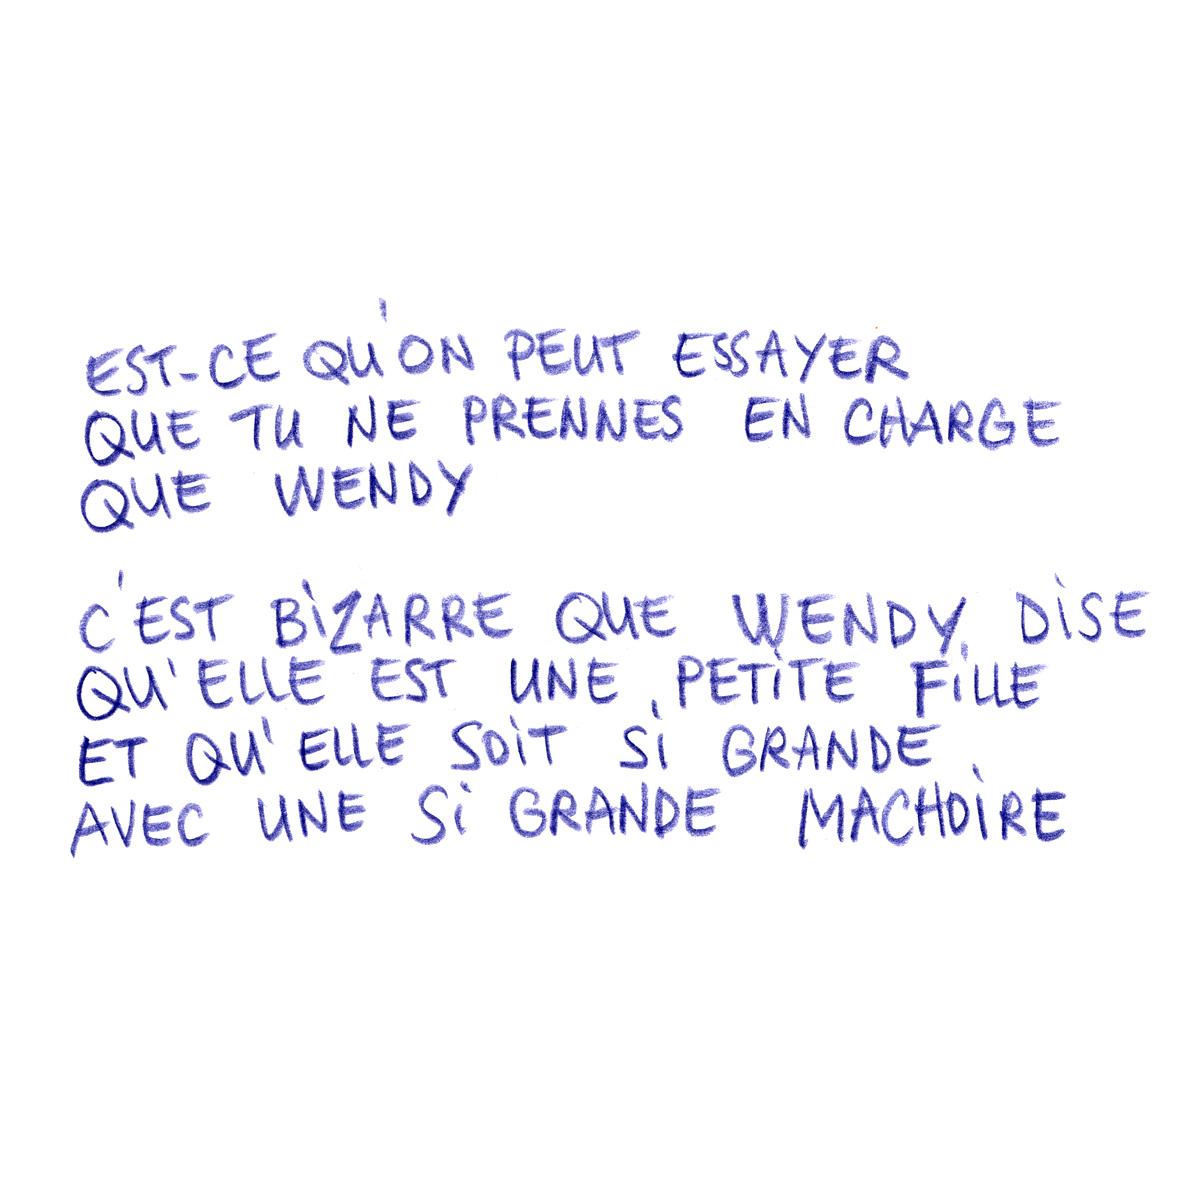 EST-CE QU'ON PEUT ESSAYER
QUE TU NE PRENNES EN CHARGE
QUE WENDY
C'EST BIZARRE QUE WENDY DISE
QU'ELLE EST UNE PETITE FILLE
ET QU'ELLE SOIT SI GRANDE
AVEC UNE SI GRANDE MACHOIRE